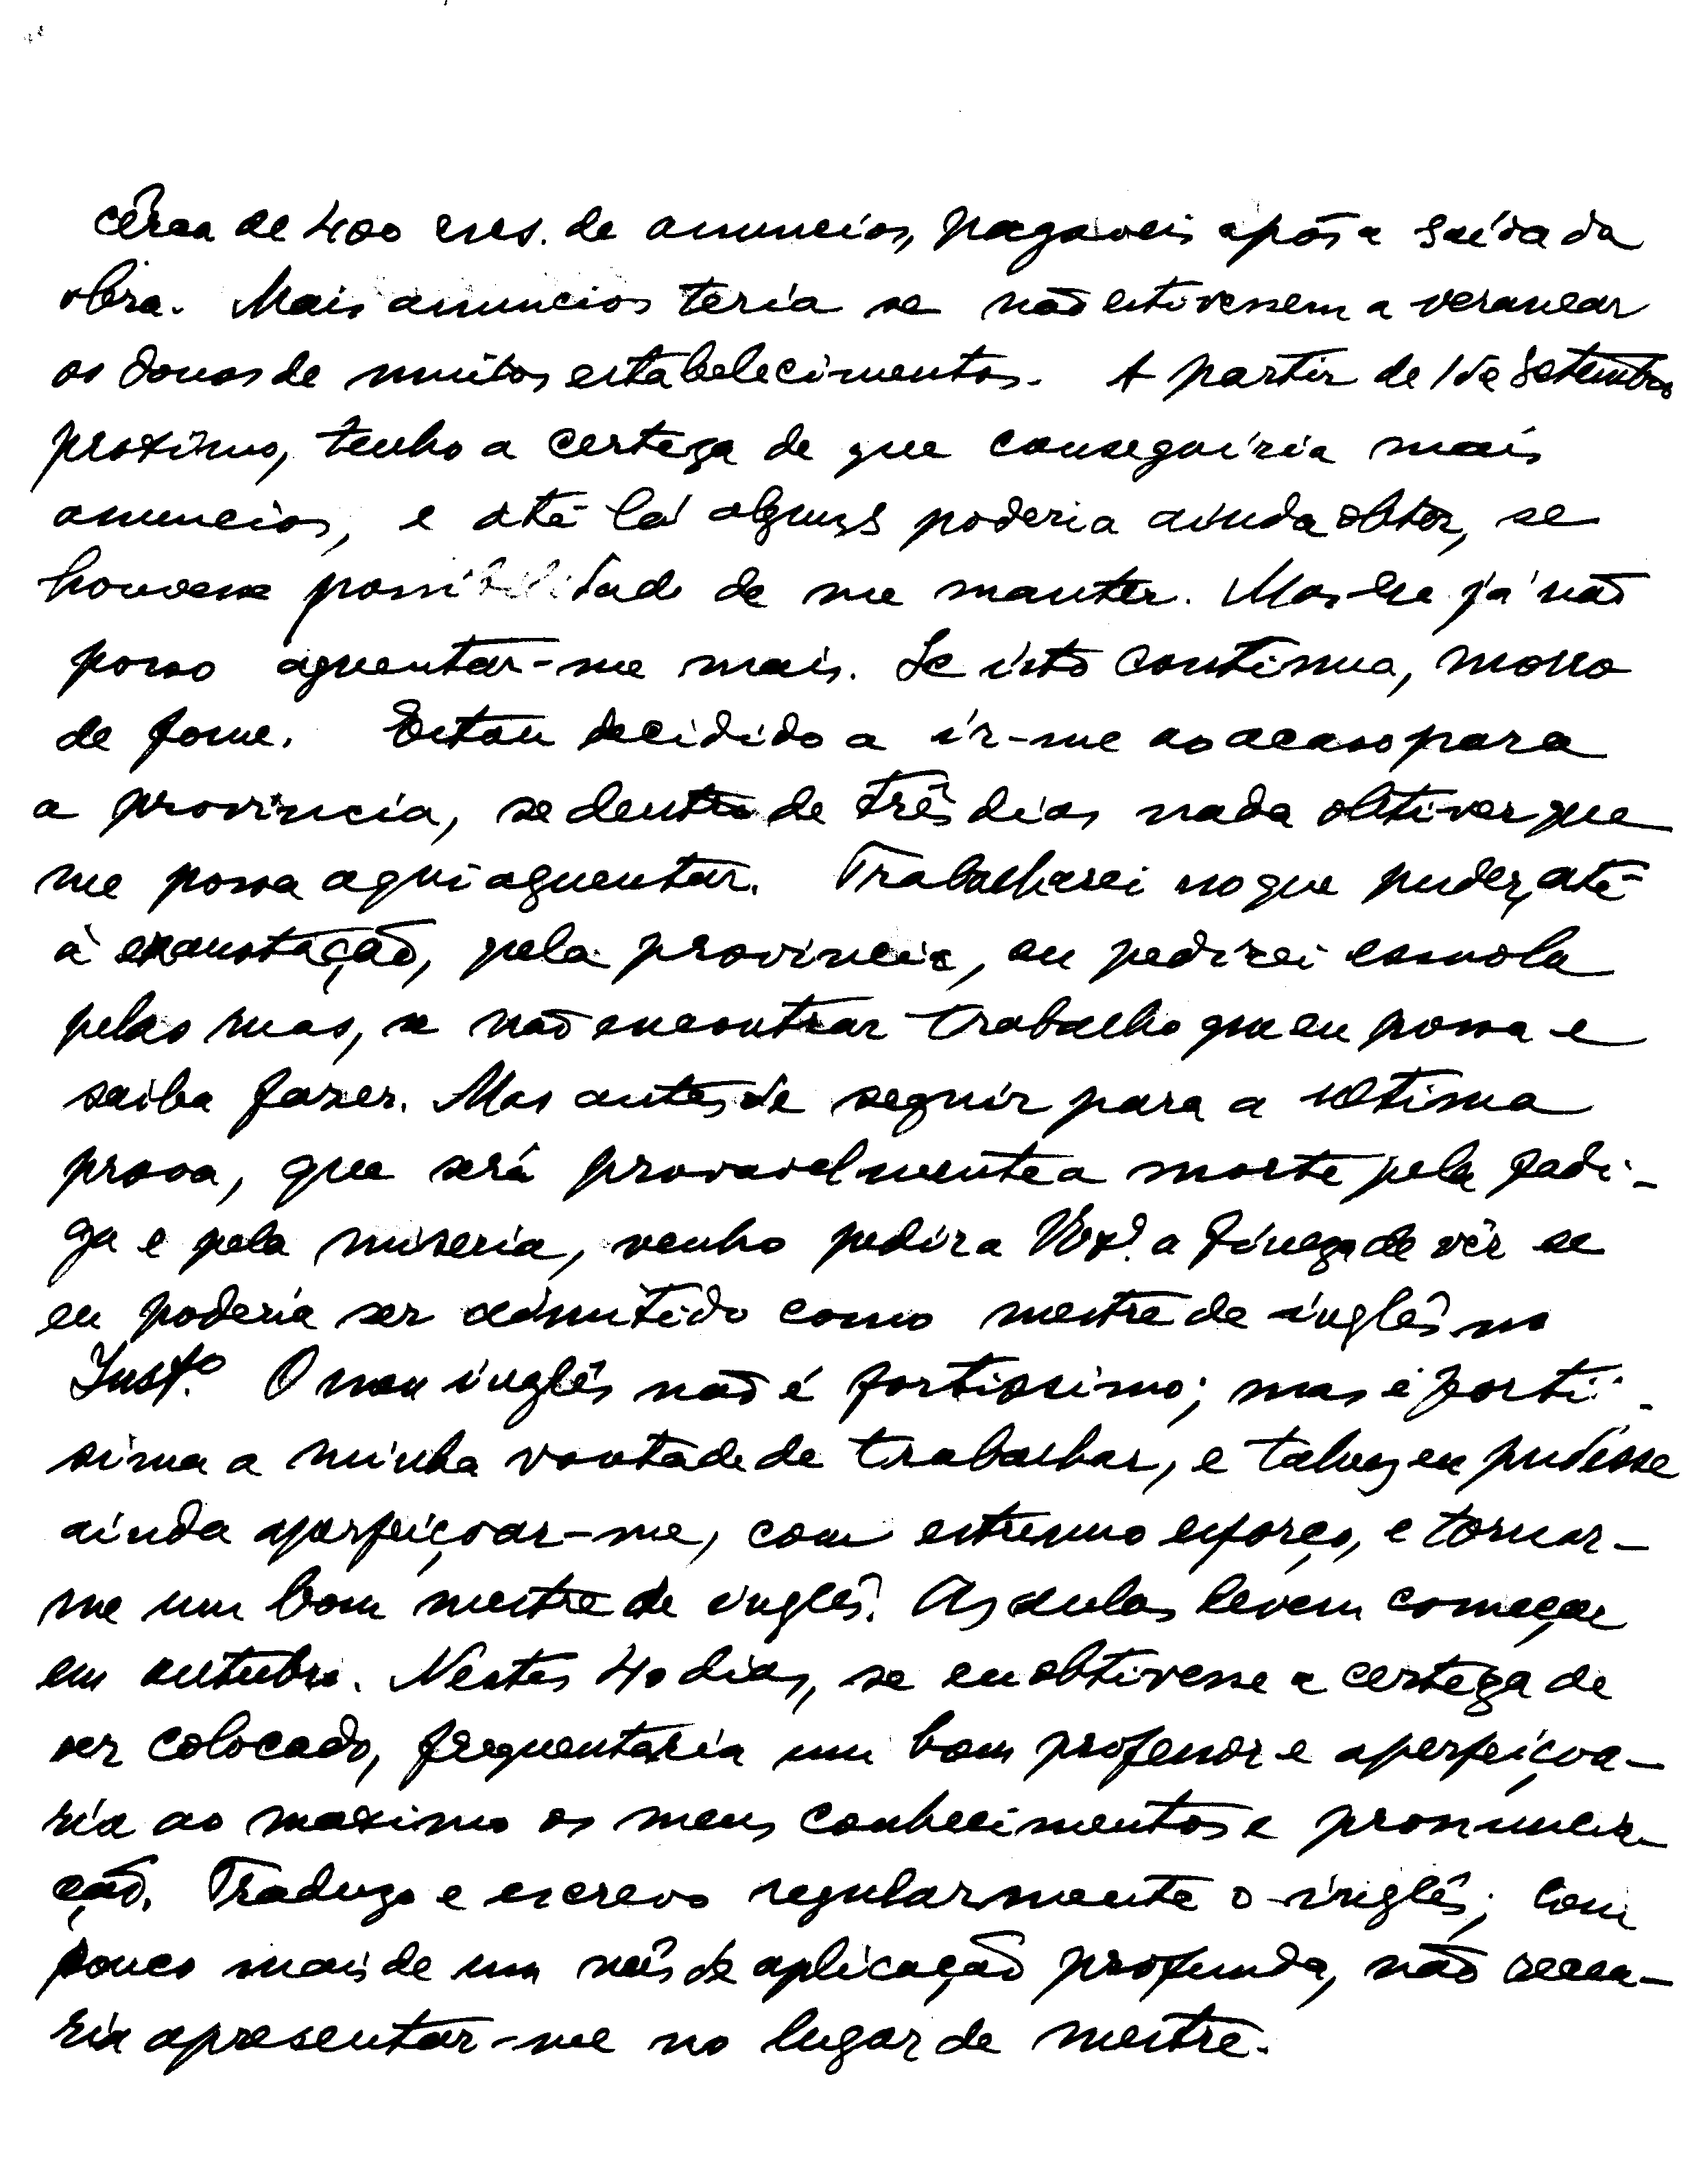 cêrca de 400 escs. de anuncios, pagaveis após a saída da
obra. Mais anuncios teria se não estivessem a veranear
os donos de muitos estabelecimentos. A partir de 1 de Setembro
proximo, tenho a certeza de que conseguiria mais
anuncios, e até lá alguns poderia ainda obter, se
houvesse possibilidade de me manter. Mas eu já não
posso aguentar-me mais. Se isto continua, morro
de fome. Estou decidido a ir-me ao acaso para
a provincia, se dentro de três dias nada obtiver que
me possa aqui aguentar. Trabalharei no que puder, até
à exaustação, pela provincia, ou pedirei esmola
pelas ruas, se não encontrar trabalho que eu possa e
saiba fazer. Mas antes de seguir para a ultima
prova, que será provavelmente a morte pela fadi-
ga e pela miseria, venho pedir a V. Ex.ª a fineza de vêr se
eu poderia ser admitido como mestre de inglês no
Inst.º O meu inglês não é fortissimo; mas é fortis-
sima a minha vontade de trabalhar, e talvez eu pudesse
ainda aperfeiçoar-me, com extremo esforço, e tornar-
me um bom mestre de inglês. As aulas devem começar
em outubro. Nestes 40 dias, se eu obtivesse a certeza de
ser colocado, frequentaria um bom professor e aperfeiçoa-
ria ao maximo os meus conhecimentos e pronuncia-
ção. Traduzo e escrevo regularmente o inglês; com
pouco mais de um mês de aplicação profunda, não recea-
ria apresentar-me no lugar de mestre.